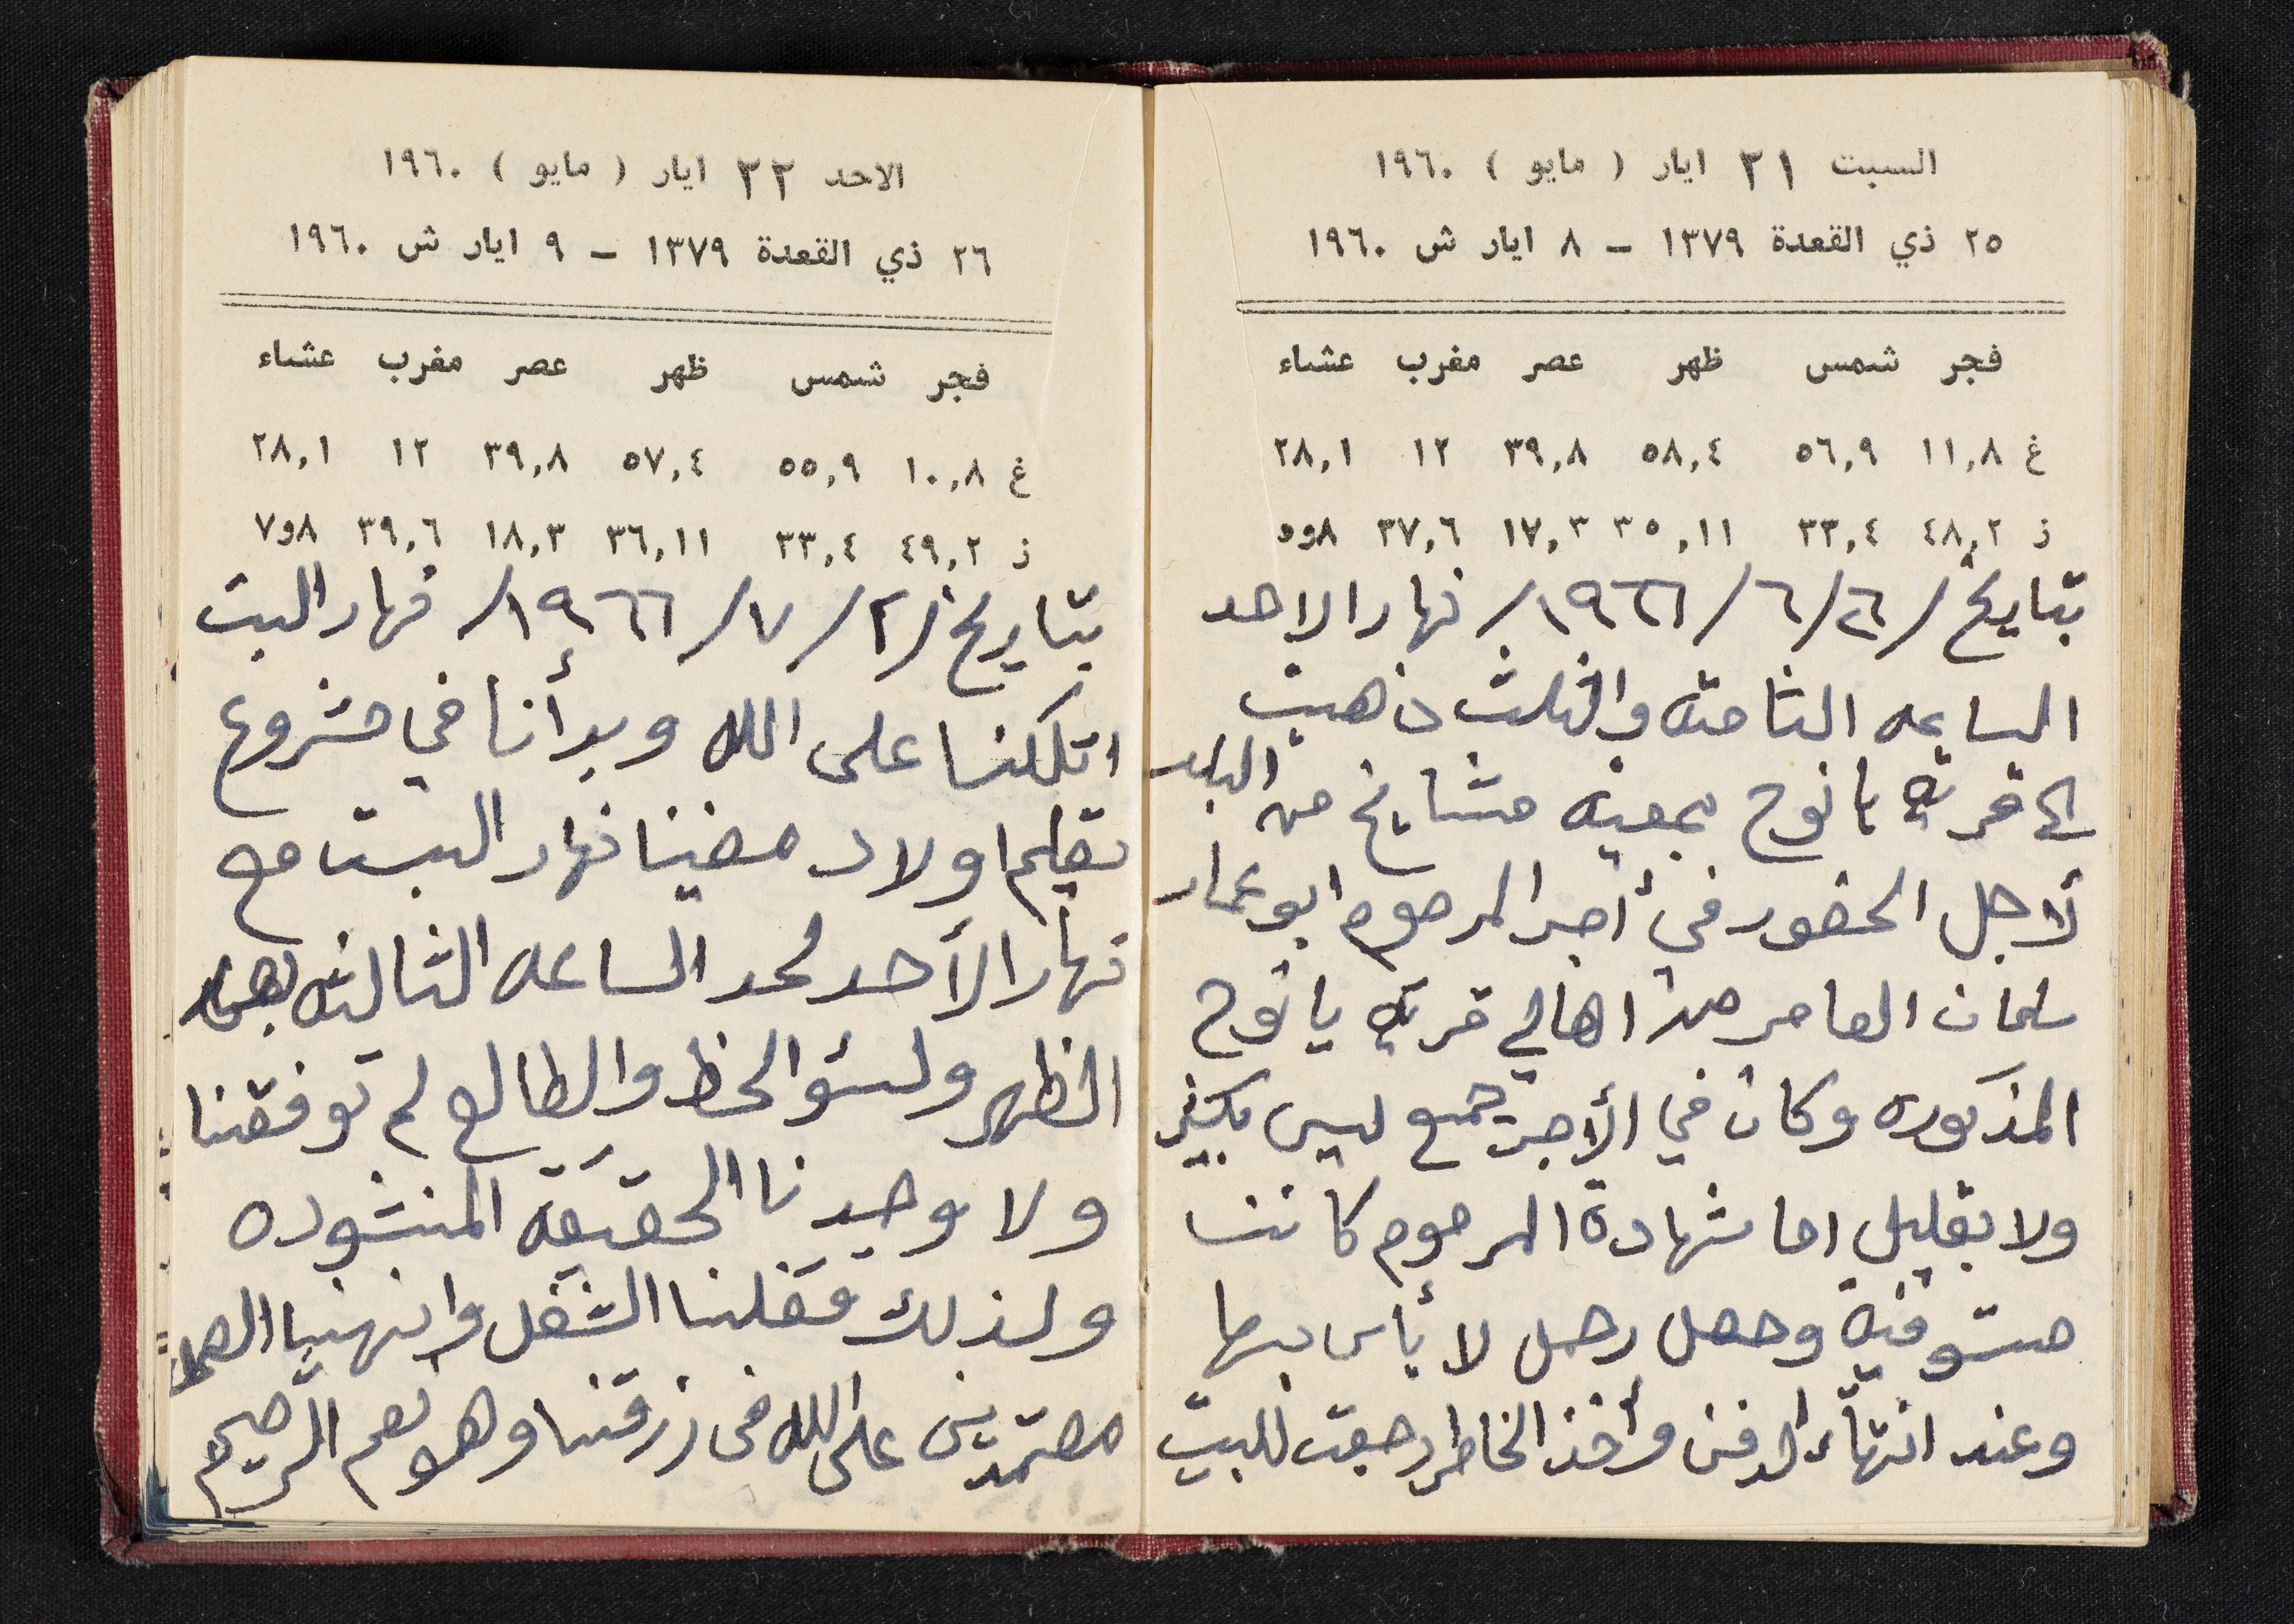 السبت ٢١ ايار ( مايو ) ١٩٦٠
٢٥ ذي القعدة ١٣٧٩ – ٨ ايار ش ١٩٦٠
فجر شمس ظهر عصر مغرب عشاء
غ ١١,٨ ٥٦,٩ ٥٨,٤ ٣٩,٨ ١٢ ٢٨,١
ز ٤٨,٢ ٣٣,٤ ٣٥,١١ ١٧,٣ ٣٧,٦ ٨و٥
بتاريخ /٢٦/٦/١٩٦٦/ نهار الاحد
الساعه الثامنه والثلث ذهبت
الى قرية يانوح بمعية مشايخ من البلد
لأجل الحضور في أجر المرحوم ابو عمار
سلمان العامر من اهالي قرية يانوح
المذكوره وكان في الأجر جمع ليس بكثير
ولا بقليل اما شهادة المرحوم كانت
مستوفية وحصل رحمل لا بأس بها
وعند انتهاء الدفن وأخذ الخاطر رجعت للبيت
الاحد ٢٢ ايار ( مايو ) ١٩٦٠
٢٦ ذي القعدة ١٣٧٩ – ٩ ايار ش ١٩٦٠
فجر شمس ظهر عصر مغرب عشاء
غ ١٠,٨ ٥٥,٩ ٥٧,٤ ٣٩,٨ ١٢ ٢٨,١
ز ٤٩,٢ ٣٣,٤ ٣٦,١١ ١٨,٣ ٣٩,٦ ٨و٧
بتاريخ /٢/٧/١٩٦٦/ نهار السبت
اتكلنا على الله وبدأنا في مشروع
تعليم اولاد مضينا نهار السبت مع
نهار الأحد لحد الساعه الثالثه بعد
الظهر ولسؤ الحظ والطالع لم توفقنا
ولا وجدنا الحقيقة المنشوده
ولذلك قفلنا الشغل وانهينا العمل
معتمدين على الله في رزقنا وهو نعم الرحيم